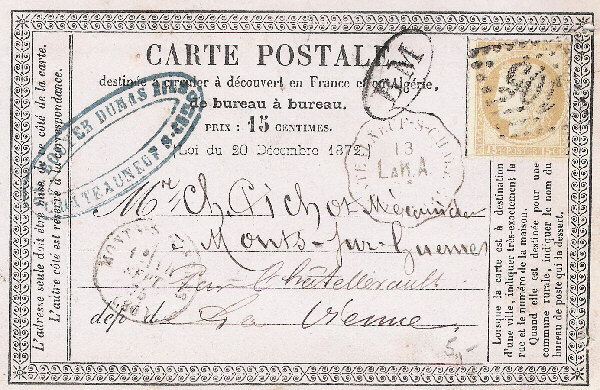 CARTE POSTALE
destinée à circuler à découvert en France et en Algérie,
de bureau à bureau.
PRIX : 15 CENTIMES.
Loi du 20 Décembre 1872.
L'adresse seule doit être mise de ce côté de la carte.
L'autre côté est réservé à la correspondance.
DUMAS
CHATEAUNEUF S. CHER
13
Mr Ch. Pichot Mécanicien
à Monts-sur-Guesnes
Par Châtellerault
dépt de La Vienne
MONTS
5,-
Lorsque la carte est à destination
d'une ville, indiquer très-exactement la
rue et le numéro de la maison.
Quand elle est destinée pour une
commune rurale, indiquer le nom du
bureau de poste qui la dessert.